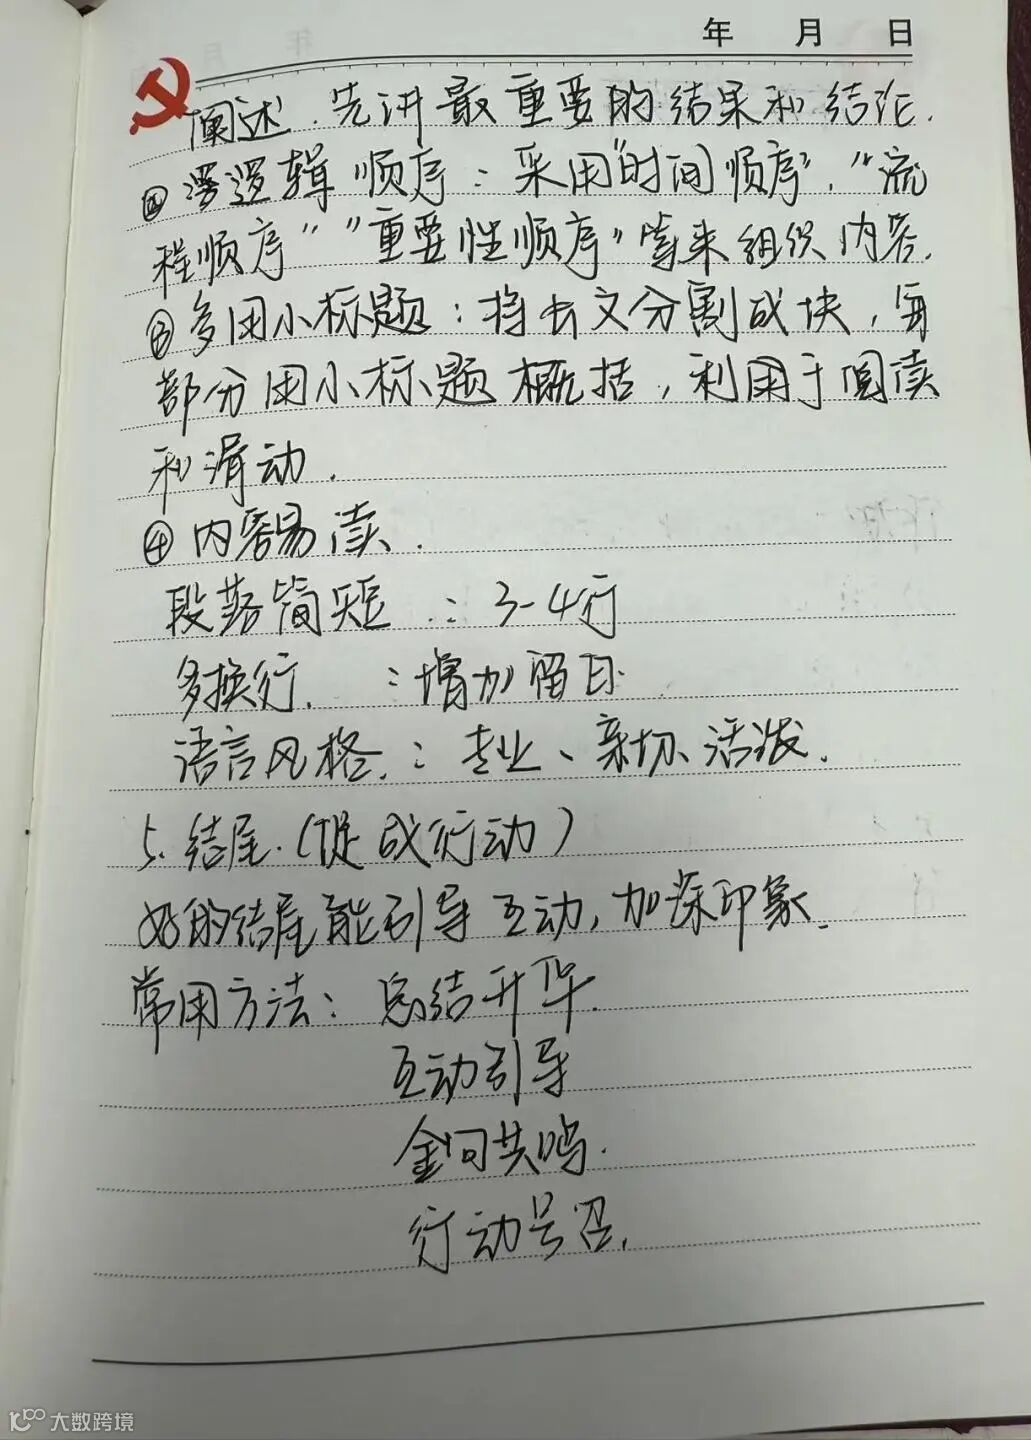 年 月 日
阐述.先讲最重要的结果和结论.
②逻辑顺序：采用"时间顺序"."流
程顺序""重要性顺序"等来组织内容.
③多用小标题：将长文分割成块，每
部分用小标题概括，利用于阅读
和滑动.
④内容易读.
段落简短：3-4行
多换行.：增加留白.
语言风格.：专业、亲切、活泼.
5.结尾.(促成行动)
好的结尾能引导互动,加深印象.
常用方法：总结升华.
互动引导
金句共鸣.
行动号召.
大数跨境